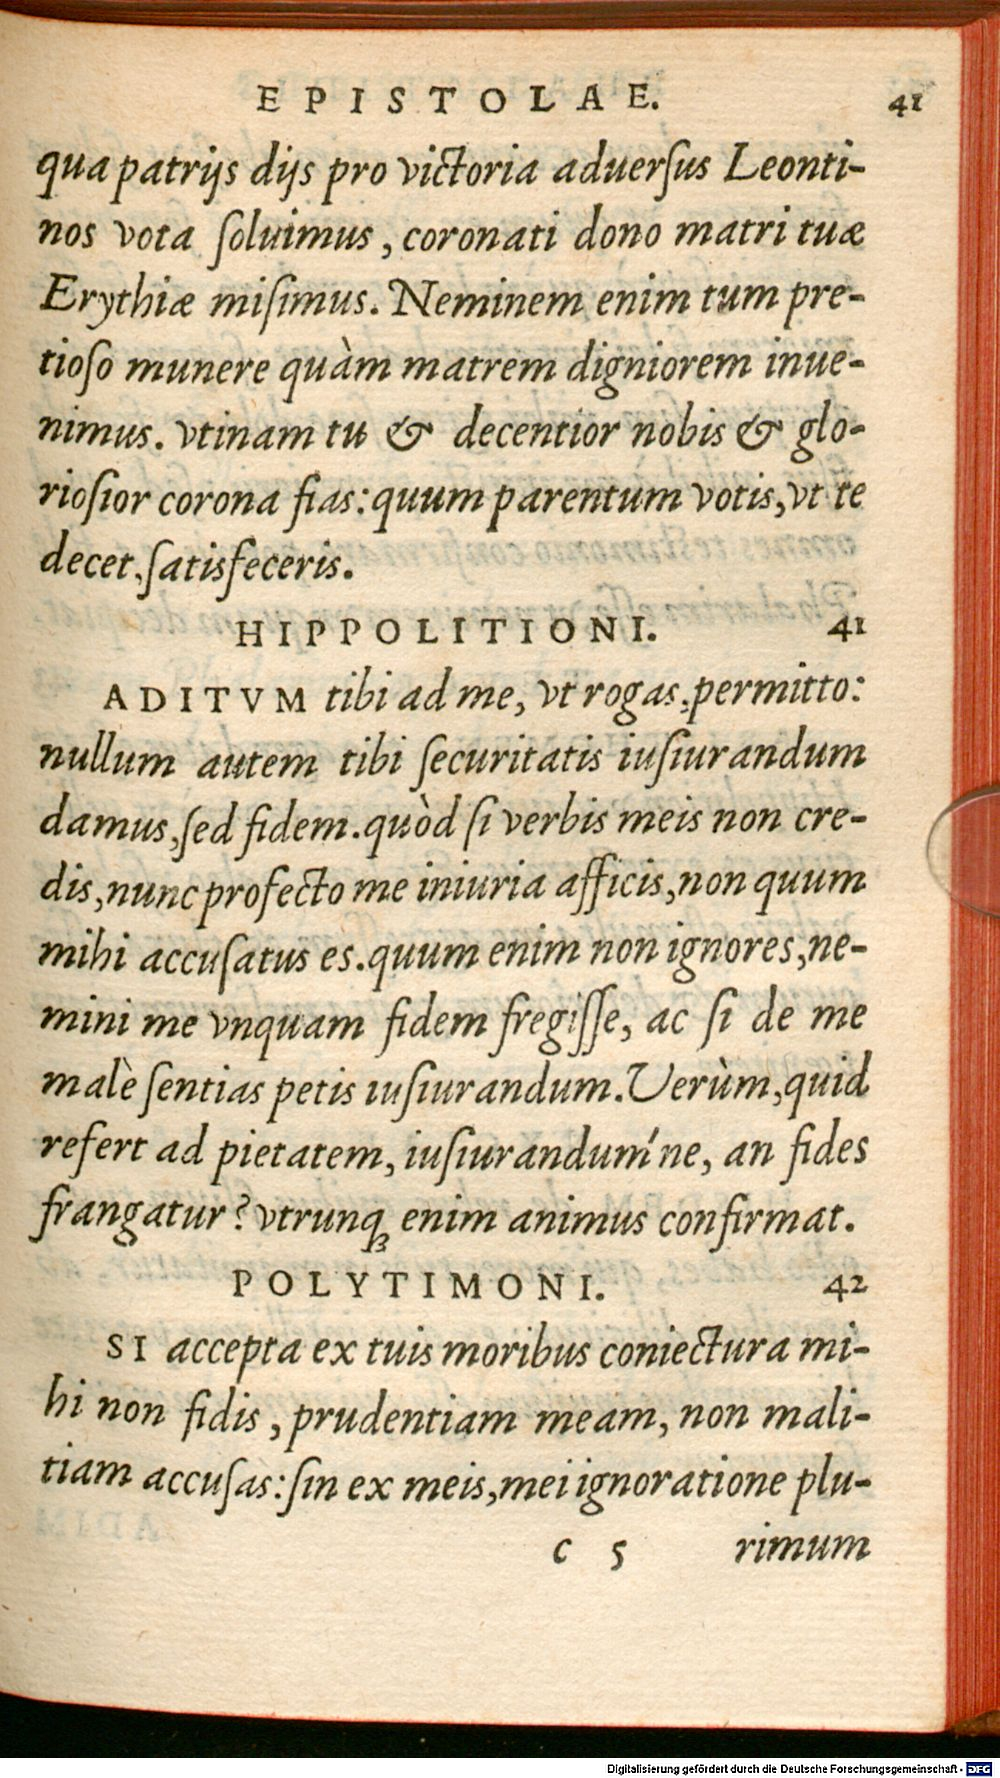 EPISTOLAE. 41
qua patrijs dijs pro victoria aduerſus Leonti-
nos vota ſoluimus, coronati dono matri tuæ
Erythiæ miſimus. Neminem enim tum pre-
tioſo munere quàm matrem digniorem inue-
nimus. vtinam tu & decentior nobis & glo-
rioſior corona fias: quum parentum votis, vt te
decet, ſatisfeceris.
HIPPOLITIONI. 41
ADITVM tibi ad me, vt rogas, permitto:
nullum autem tibi ſecuritatis iuſiurandum
damus, ſed fidem. quòd ſi verbis meis non cre-
dis, nunc profecto me iniuria afficis, non quum
mihi accuſatus es. quum enim non ignores, ne-
mini me vnquam fidem fregiſſe, ac ſi de me
malè ſentias petis iuſiurandum. Verùm, quid
refert ad pietatem, iuſiurandum´ne, an fides
frangatur? vtrunqꝫ enim animus confirmat.
POLYTIMONI. 42
SI accepta ex tuis moribus coniectura mi-
hi non fidis, prudentiam meam, non mali-
tiam accuſas: ſin ex meis, mei ignoratione plu-
c 5 rimum
Digitalisierung gefördert durch die Deutsche Forschungsgemeinschaft - DFG